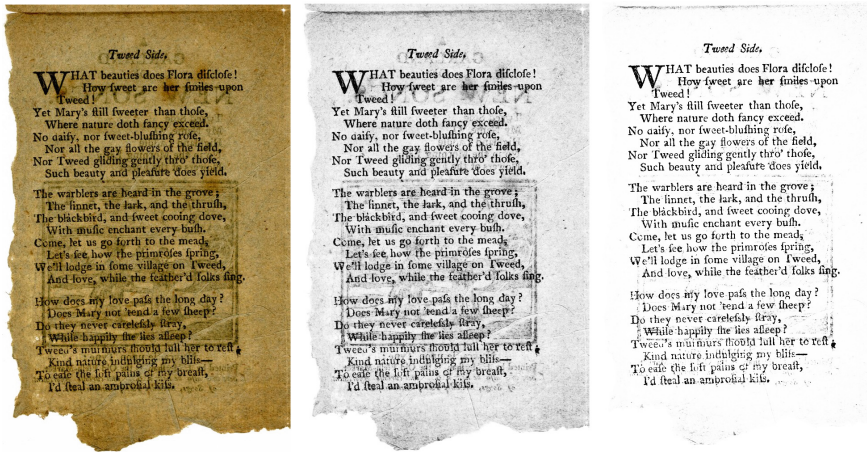 Tweed Side.
WHAT beauties does Flora diſcloſe!
How ſweet are her ſmiles upon
Tweed!
Yet Mary's ſtill ſweeter than thoſe,
Where nature doth fancy exceed.
No daiſy, nor ſweet-bluſhing roſe,
Nor all the gay flowers of the field,
Nor Tweed gliding gently thro' thoſe,
Such beauty and pleaſure does yield.
The warblers are heard in the grove;
The linnet, the lark, and the thruſh,
The blackbird, and ſweet cooing dove,
With muſic enchant every buſh.
Come, let us go forth to the mead,
Let's ſee how the primroſes ſpring,
We'll lodge in ſome village on Tweed,
And love, while the feather'd folks ſing.
How does my love paſs the long day?
Does Mary not 'tend a few ſheep?
Do they never careleſsly ſtray,
While happily ſhe lies aſleep?
Tweed's murmurs ſhould lull her to reſt,
Kind nature indulging my bliſs—
To eaſe the ſoft pains of my breaſt,
I'd ſteal an ambroſial kiſs.
Tweed Side.
WHAT beauties does Flora diſcloſe!
How ſweet are her ſmiles upon
Tweed!
Yet Mary's ſtill ſweeter than thoſe,
Where nature doth fancy exceed.
No daiſy, nor ſweet-bluſhing roſe,
Nor all the gay flowers of the field,
Nor Tweed gliding gently thro' thoſe,
Such beauty and pleaſure does yield.
The warblers are heard in the grove;
The linnet, the lark, and the thruſh,
The blackbird, and ſweet cooing dove,
With muſic enchant every buſh.
Come, let us go forth to the mead,
Let's ſee how the primroſes ſpring,
We'll lodge in ſome village on Tweed,
And love, while the feather'd folks ſing.
How does my love paſs the long day?
Does Mary not 'tend a few ſheep?
Do they never careleſsly ſtray,
While happily ſhe lies aſleep?
Tweed's murmurs ſhould lull her to reſt,
Kind nature indulging my bliſs—
To eaſe the ſoft pains of my breaſt,
I'd ſteal an ambroſial kiſs.
Tweed Side.
WHAT beauties does Flora diſcloſe!
How ſweet are her ſmiles upon
Tweed!
Yet Mary's ſtill ſweeter than thoſe,
Where nature doth fancy exceed.
No daiſy, nor ſweet-bluſhing roſe,
Nor all the gay flowers of the field,
Nor Tweed gliding gently thro' thoſe,
Such beauty and pleaſure does yield.
The warblers are heard in the grove;
The linnet, the lark, and the thruſh,
The blackbird, and ſweet cooing dove,
With muſic enchant every buſh.
Come, let us go forth to the mead,
Let's ſee how the primroſes ſpring,
We'll lodge in ſome village on Tweed,
And love, while the feather'd folks ſing.
How does my love paſs the long day?
Does Mary not 'tend a few ſheep?
Do they never careleſsly ſtray,
While happily ſhe lies aſleep?
Tweed's murmurs ſhould lull her to reſt,
Kind nature indulging my bliſs—
To eaſe the ſoft pains of my breaſt,
I'd ſteal an ambroſial kiſs.